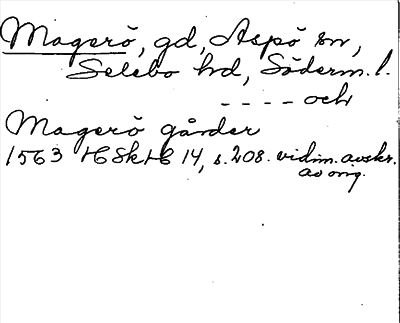 Magerö, gd, Aspö sn,
Selebo hd, Söderm. l.
---- och
Magerö gårder
1563 HSkH 14, s. 208. vidim. avskr.
av orig.